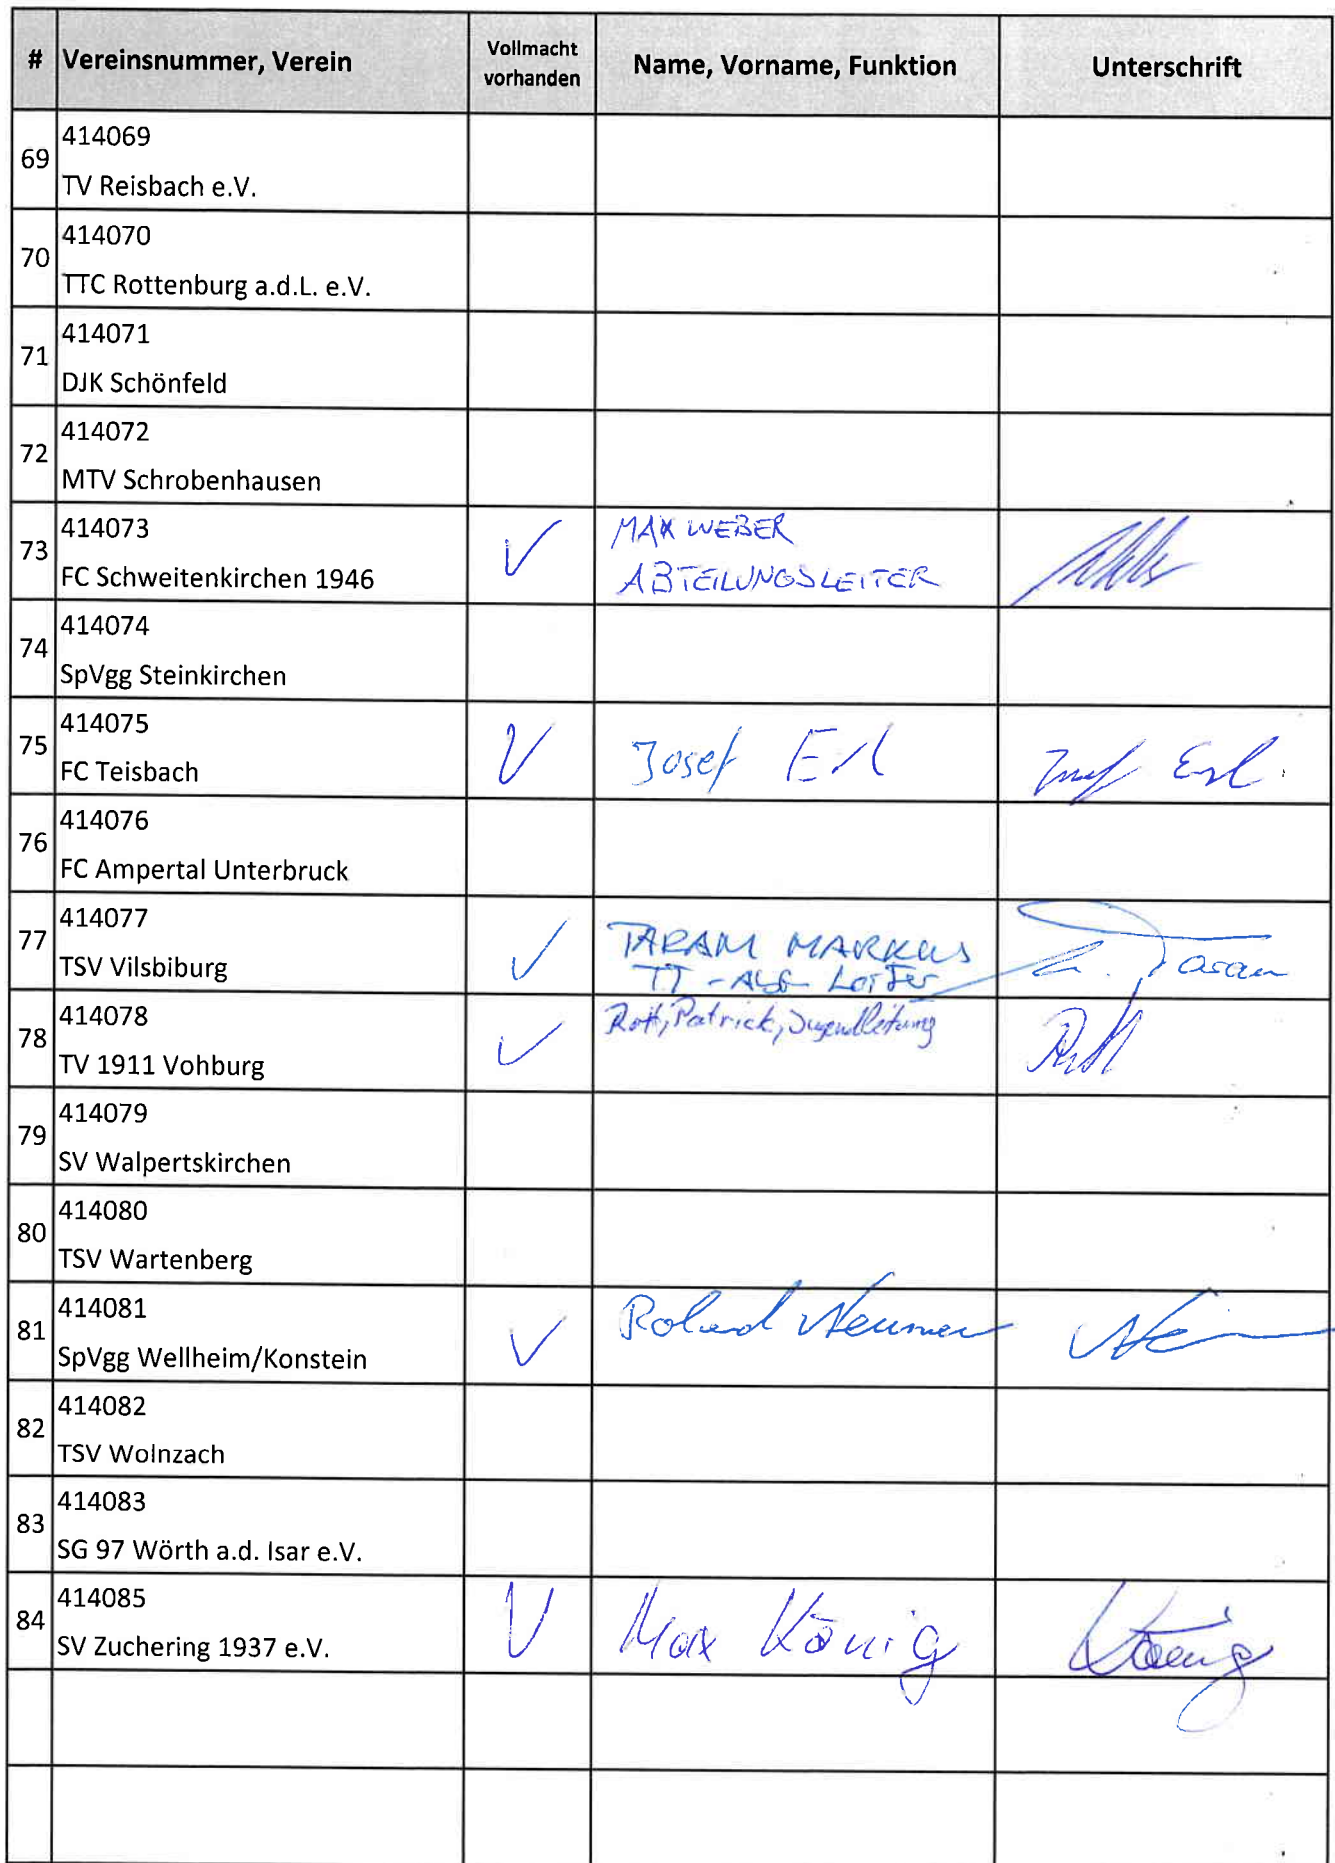 # Vereinsnummer, Verein Vollmacht vorhanden Name, Vorname, Funktion Unterschrift
69 414069
TV Reisbach e.V.
70 414070
TTC Rottenburg a.d.L. e.V.
71 414071
DJK Schönfeld
72 414072
MTV Schrobenhausen
73 414073 MAX WEBER
FC Schweitenkirchen 1946 ABTEILUNGSLEITER
74 414074
SpVgg Steinkirchen
75 414075
FC Teisbach Josef Erl Josef Erl
76 414076
FC Ampertal Unterbruck
77 414077 TARAM MARKUS
TSV Vilsbiburg TT-
78 414078 Rott, Patrick, Jugendleitung
TV 1911 Vohburg
79 414079
SV Walpertskirchen
80 414080
TSV Wartenberg
81 414081 Roland
SpVgg Wellheim/Konstein
82 414082
TSV Wolnzach
83 414083
SG 97 Wörth a.d. Isar e.V.
84 414085 Max König König
SV Zuchering 1937 e.V.